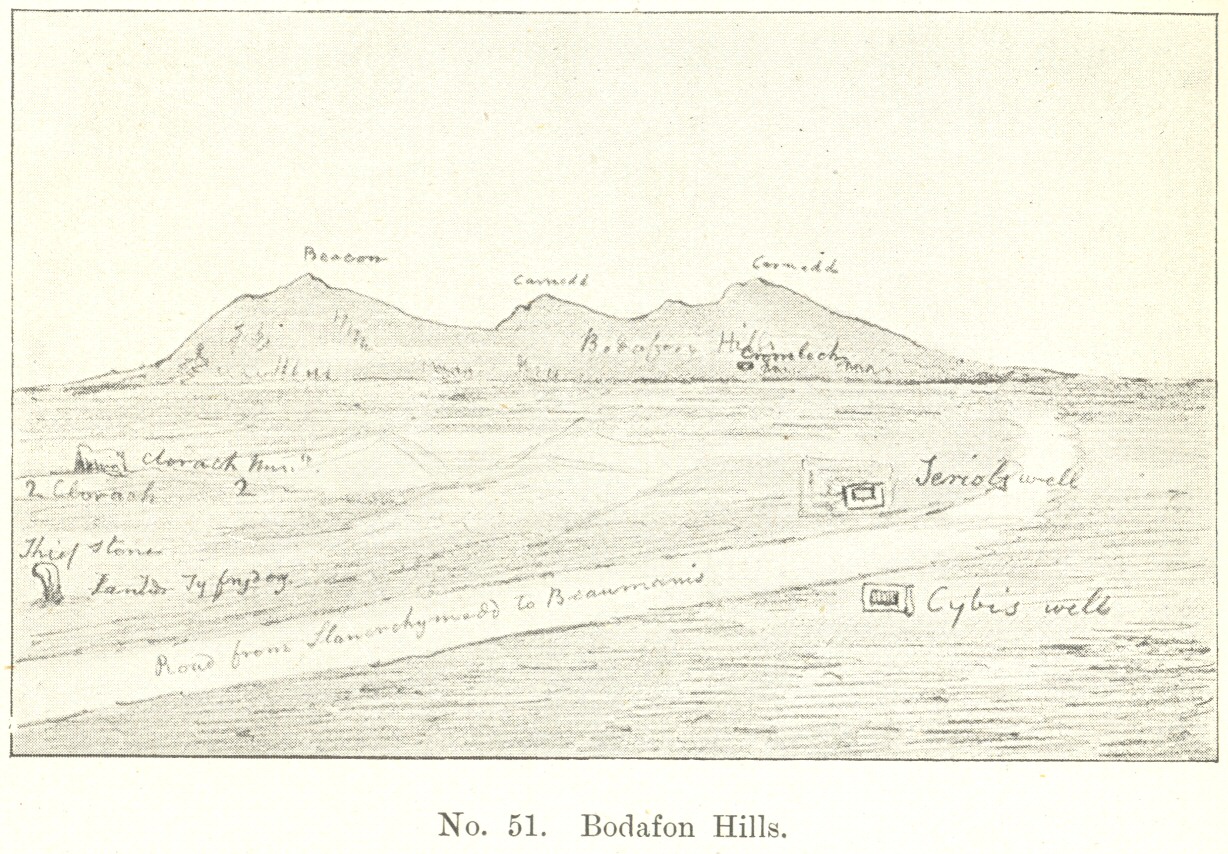 Beacon
Carnedd
Carnedd
Bodafon Hills
Cromlech
Clorach
2 Clorach 2
Jeriols well
Thief stone
Cybis well
Road from Llanerchymedd to Beaumaris
No. 51. Bodafon Hills.